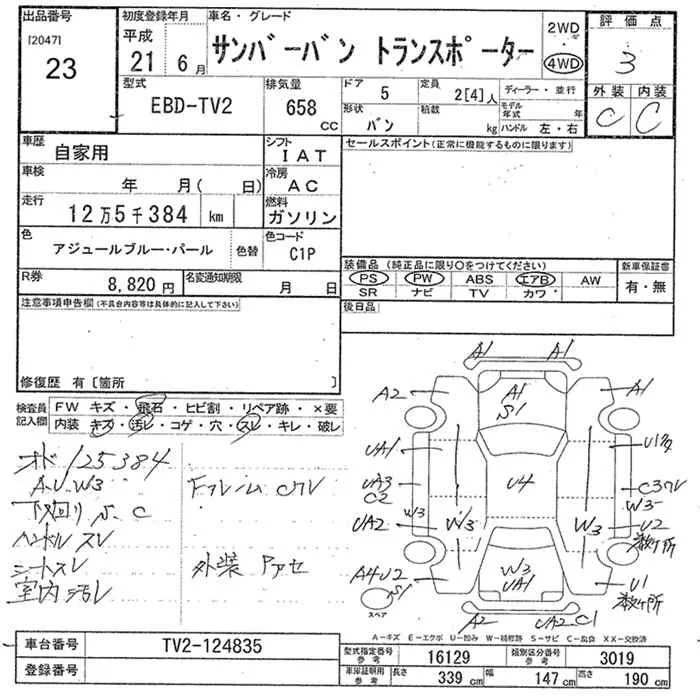 出品番号
[2047]
23
初度登録年月
平成
21 6月
車名・グレード
サンバーバン トランスポーター
2WD
・
4WD
評価点
3
外装 内装
C C
型式
EBD-TV2
排気量
658
cc
ドア
5
定員
2[4]人
形状
バン
積載
kg
ディーラー・並行
モデル年式 年
ハンドル 左・右
車歴
自家用
シフト
IAT
車検
年 月( 日)
冷房
AC
走行
12万5千384 km
燃料
ガソリン
色
アジュールブルー・パール
色替
色コード
C1P
R券
8,820円
名変通知期限
月 日
セールスポイント(正常に機能するものに限ります)
装備品(純正品に限り○をつけてください)
PS PW ABS エアB AW
SR ナビ TV カワ
新車保証書
有・無
後日品
注意事項申告欄(不具合内容等は具体的に記入して下さい)
修復歴 有〔箇所 〕
検査員記入欄
FW キズ・飛石・ヒビ割・リペア跡・×要
内装 キズ・汚レ・コゲ・穴・スレ・キレ・破レ
オド 125384
A.U.W3
下回り S.C
ハンドルスレ
シートスレ
室内汚レ
Fフレーム Cワレ
外装 Pアセ
A1 A1
A2 A1 S1 A1
UA1
UA3
C2
U4
W3
UA2 W3 W3
W3
U2
数ヶ所
A4U2
S1
W3
UA1
U1
数ヶ所
スペア
A2 UA2.C1
A-キズ E-エクボ U-凹み W-補修跡 S-サビ C-腐食 XX-交換済
車台番号
TV2-124835
登録番号
型式指定番号 参考
16129
類別区分番号 参考
3019
車庫証明用 参考
長さ 339 cm 幅 147 cm 高さ 190 cm